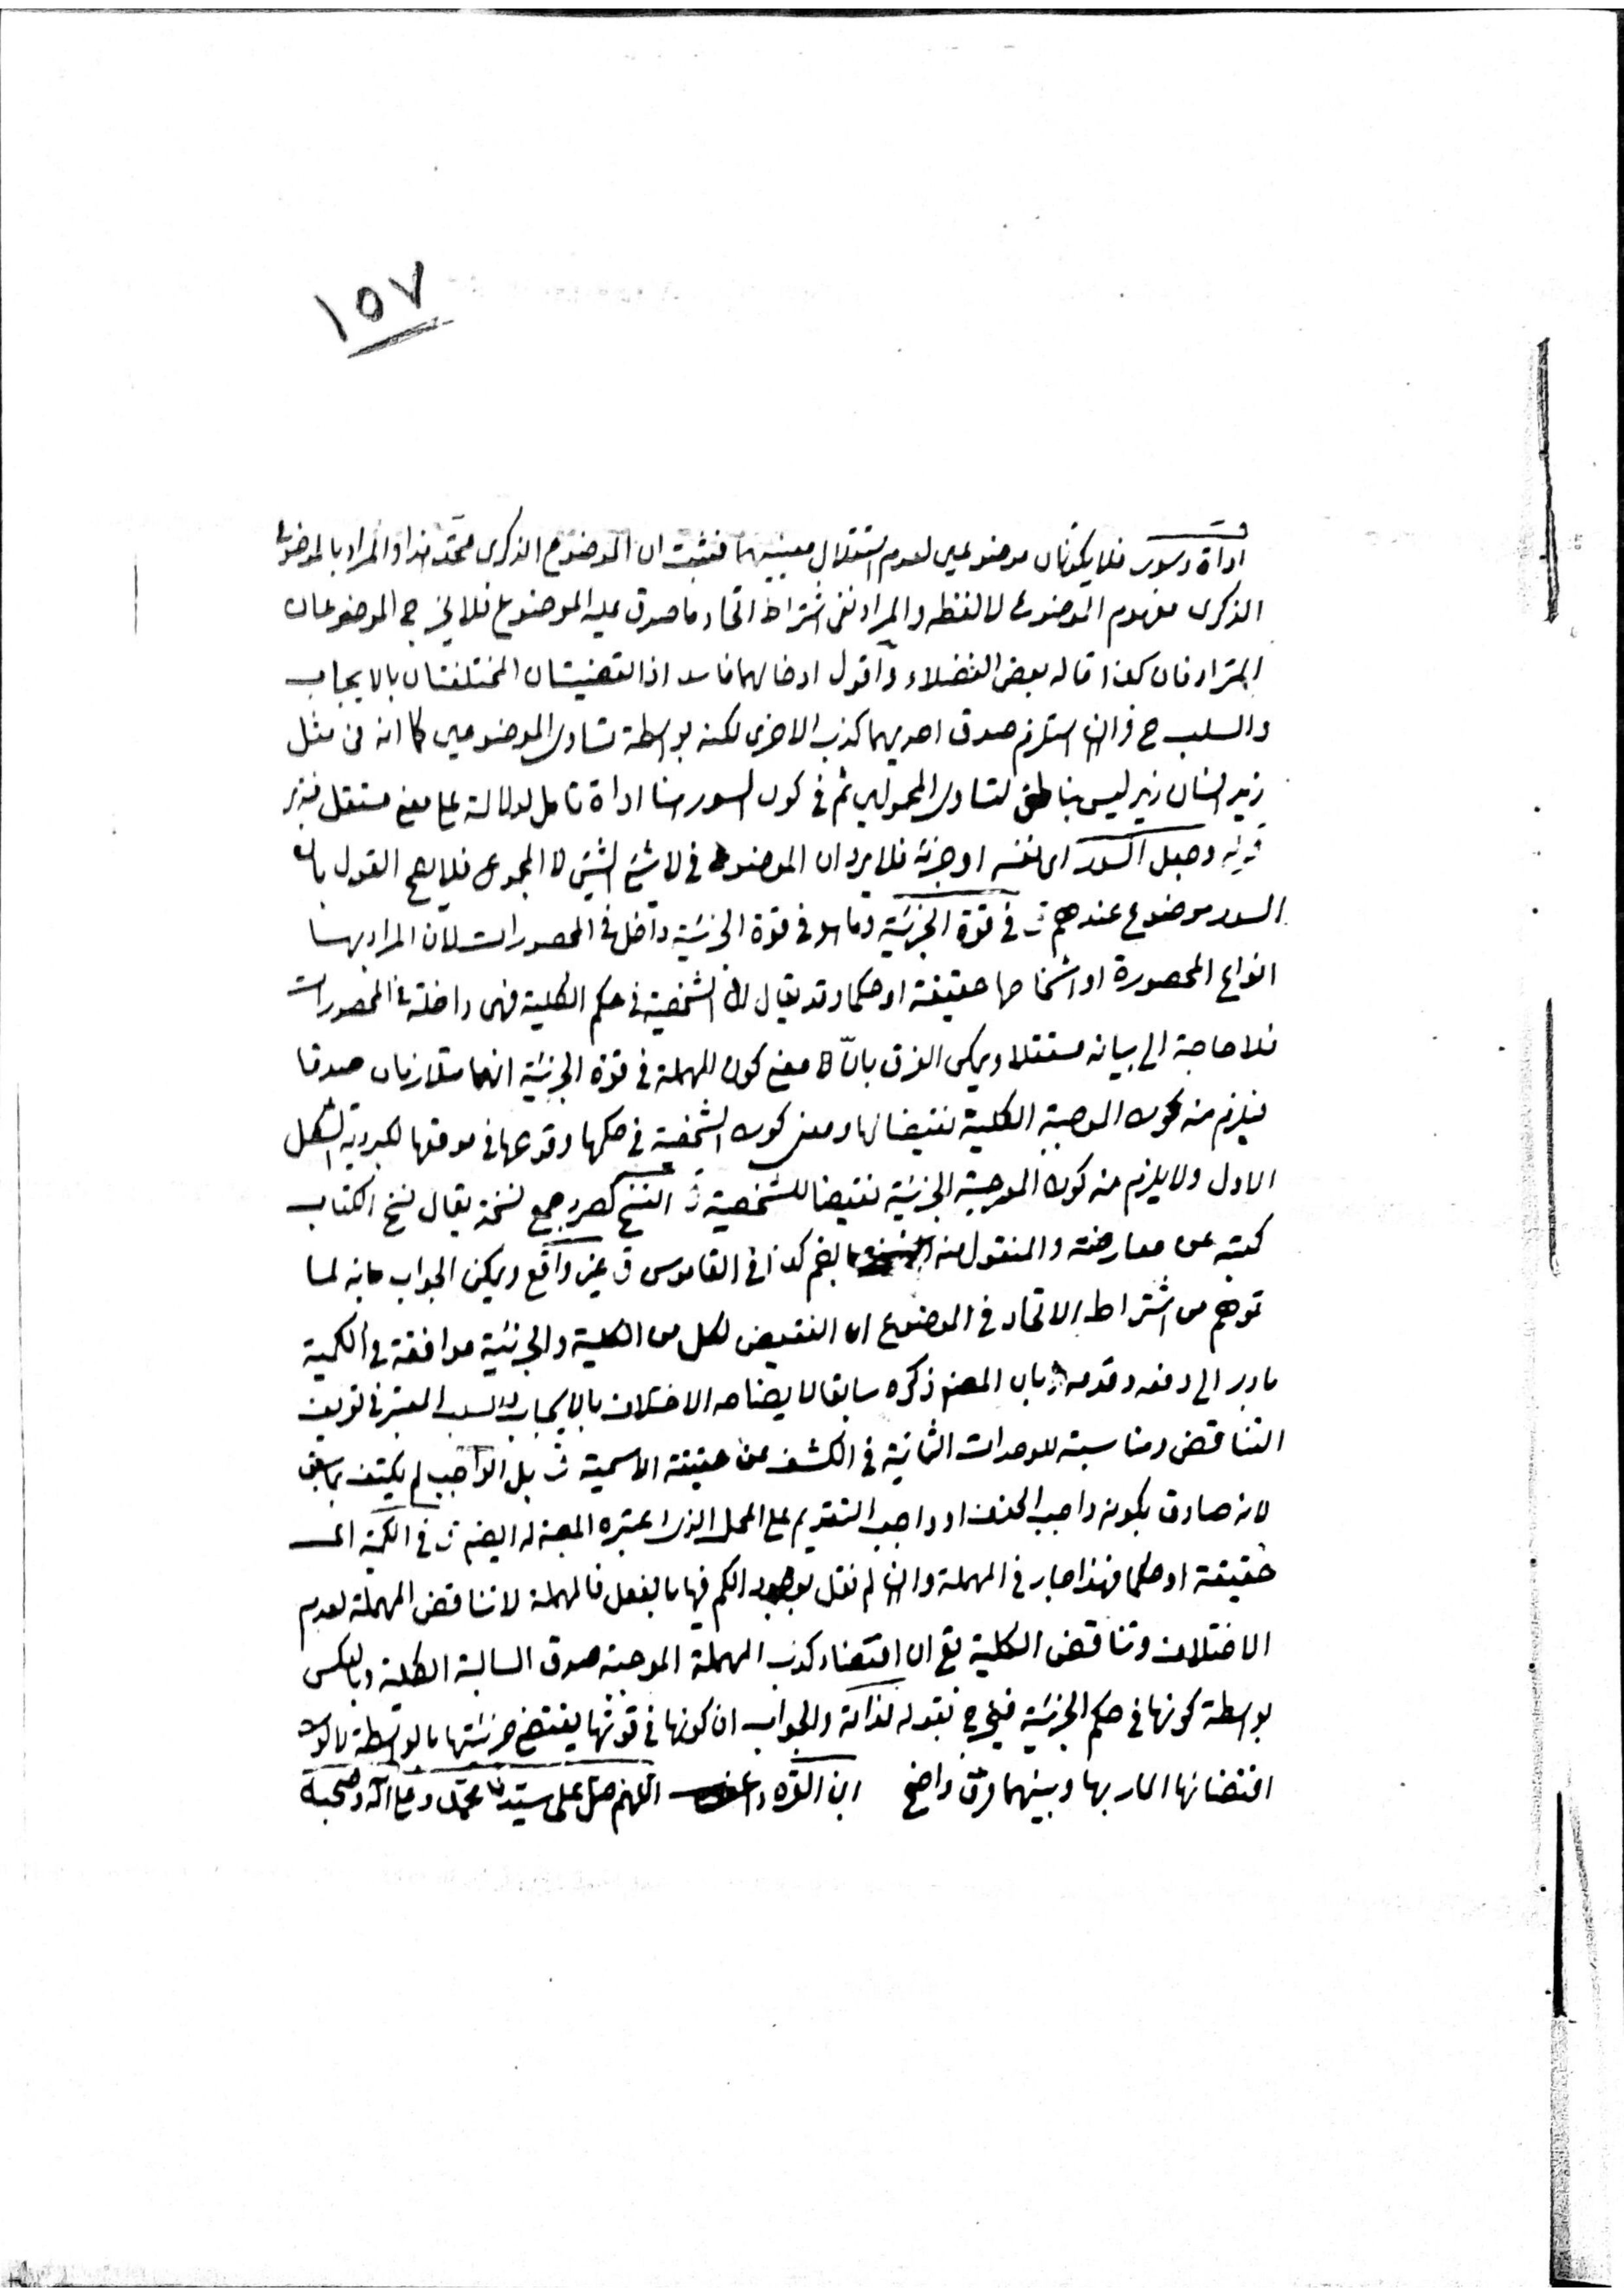 ١٥٧
اداة وسور فلا يكونان موضوعين لعدم استقلال معنييهما فثبت ان الموضوع الذكرى متحد هذا والمراد بالموضوع
الذكرى مفهوم الموضوع لا لفظه والمراد نفى اشتراط اتحاد ما صدق عليه الموضوع فلا يخرج الموضوعان
المترادفان كذا قاله بعض الفضلاء واقول ادخالهما فاسد اذ القضيتان المختلفتان بالايجاب
والسلب ح وان استلزم صدق احديهما كذب الاخرى لكنه بواسطة تساوى الموضوعين كما انه فى مثل
زيد انسان زيد ليس بناطق لتساوى المحمولين ثم فى كون السور هنا اداة تامل لدلالة على معنى مستقل فتدبر
قوله وجعل السور اى نفسه او جزئه فلا يرد ان الموضوع فى لا شئ الشئ لا المجموع فلا يصح القول بان
السور موضوع عندهم ق فى قوة الجزئية وما هو فى قوة الجزئية داخل فى المحصورات لان المراد بها
انواع المحصورة او اشخاصها حقيقة او حكما وقد يقال ان الشخصية فى حكم الكلية فهى داخلة فى المحصورات
فلا حاجة الى بيانه مستقلا ويمكن الفرق بان معنى كون المهملة فى قوة الجزئية انهما متلازمان صدقا
فيلزم منه كون الموجبة الكلية نقيضا لها ومعنى كون الشخصية فى حكمها وقوعها فى موقعها لكبروية الشكل
الاول ولا يلزم منه كون الموجبة الجزئية نقيضا للشخصية ق النسخ كصرد جمع نسخة يقال نسخ الكتاب
كتبه عن معارضة والمنقول منه بالضم كذا فى القاموس ق غير واقع ويمكن الجواب بانه لما
توهم من اشتراط الاتحاد فى الموضوع ان النقيض لكل من الكلية والجزئية موافقة فى الكمية
بادر الى دفعه وقدمه بان المصنف ذكره سابقا لايضاحه الاختلاف بالايجاب والسلب المعتبر فى تعريف
التناقض ومناسبته للوحدات الثمانية فى الكشف عن حقيقة الاسمية ق بل الواجب لم يكتف بما سبق
لانه صادق بكونه واجب الحذف او واجب التقديم على المحل الذى اعتبره المصنف له ايضا ق فى الكمية اى
حقيقة او حكما فهذا جار فى المهملة وان لم نقل بوجود الكم فيها بالفعل فالمهملة لا تناقض المهملة لعدم
الاختلاف وتناقض الكلية بقى ان اقتضاء كذب المهملة الموجبة صدق السالبة الكلية وبالعكس
بواسطة كونها فى حكم الجزئية فيخرج بقوله لذاته والجواب ان كونها فى قوتها يقتضى جزئيتها بالواسطة لا كون
اقتضائها الجار بها وبينهما فرق واضح ابن القره داغى اللهم صل على سيدنا محمد وعلى آله وصحبه